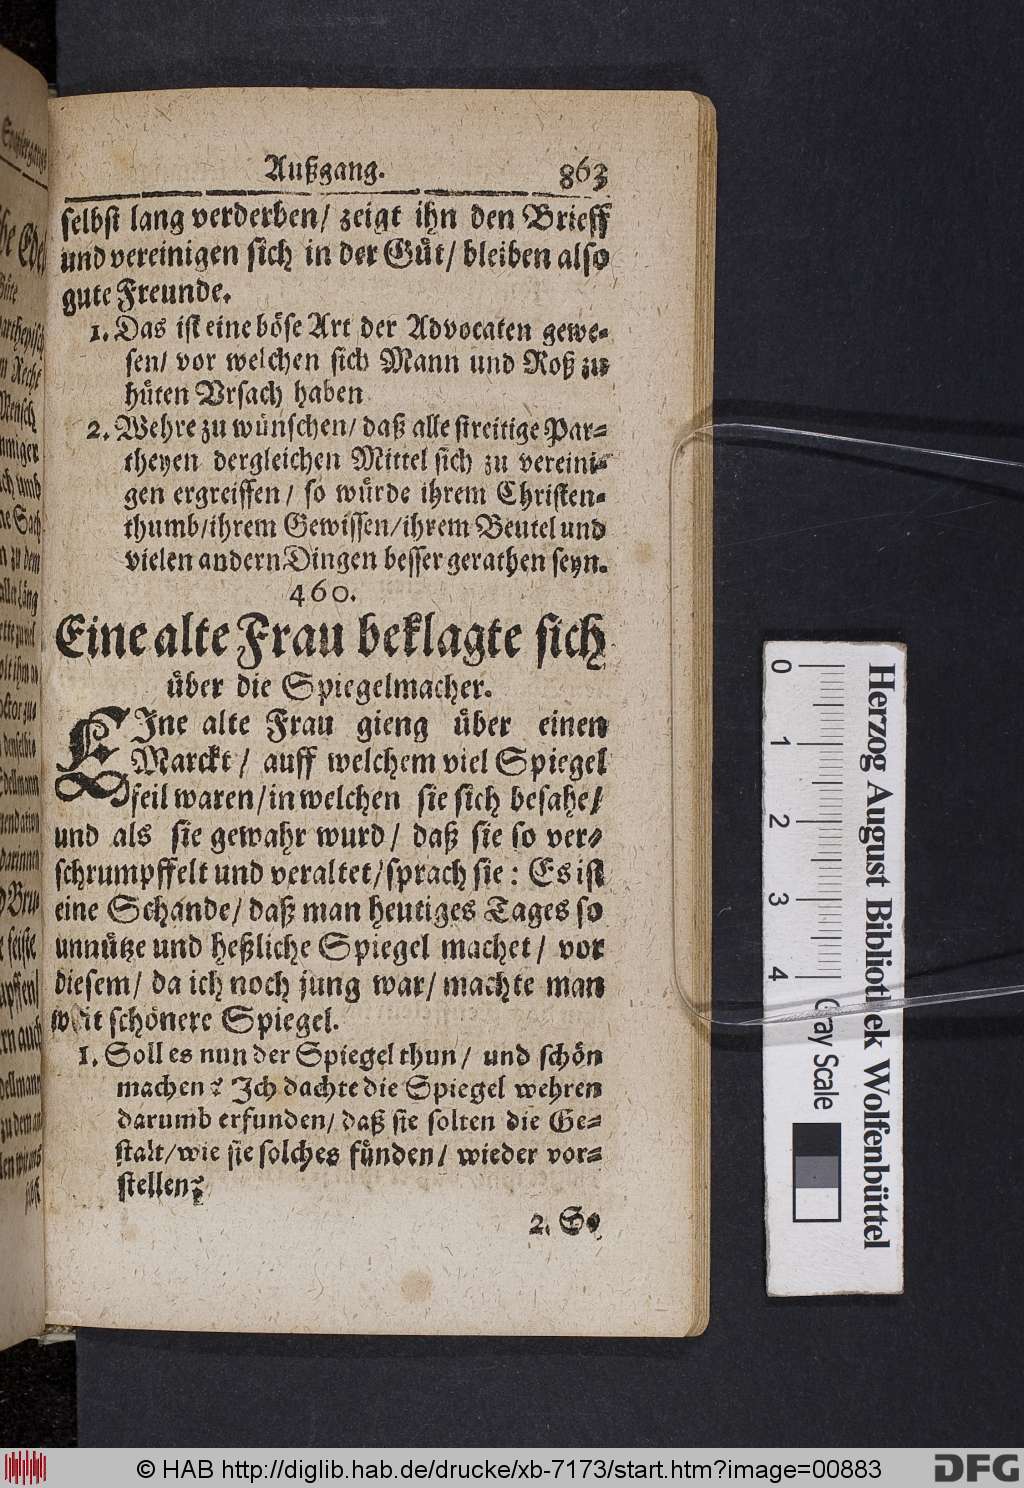 Außgang. 863
selbst lang verderben/ zeigt ihn den Brieff
und vereinigen sich in der Güt/ bleiben also
gute Freunde.
1. Das ist eine böse Art der Advocaten gewe-
sen/ vor welchen sich Mann und Roß zu
hüten Vrsach haben
2. Wehre zu wünschen/ daß alle streitige Par-
theyen dergleichen Mittel sich zu vereini-
gen ergreiffen/ so würde ihrem Christen-
thumb/ ihrem Gewissen/ ihrem Beutel und
vielen andern Dingen besser gerathen seyn.
460.
Eine alte Frau beklagte sich
über die Spiegelmacher.
EIne alte Frau gieng über einen
Marckt/ auff welchem viel Spiegel
feil waren/ in welchen sie sich besahe/
und als sie gewahr wurd/ daß sie so ver-
schrumpffelt und veraltet/ sprach sie: Es ist
eine Schande/ daß man heutiges Tages so
unnütze und heßliche Spiegel machet/ vor
diesem/ da ich noch jung war/ machte man
weit schönere Spiegel.
1. Soll es nun der Spiegel thun/ und schön
machen? Ich dachte die Spiegel wehren
darumb erfunden/ daß sie solten die Ge-
stalt/ wie sie solches fünden/ wieder vor-
stellen?
2. So
0 1 2 3 4
Herzog August Bibliothek Wolfenbüttel
Gray Scale
© HAB http://diglib.hab.de/drucke/xb-7173/start.htm?image=00883
DFG